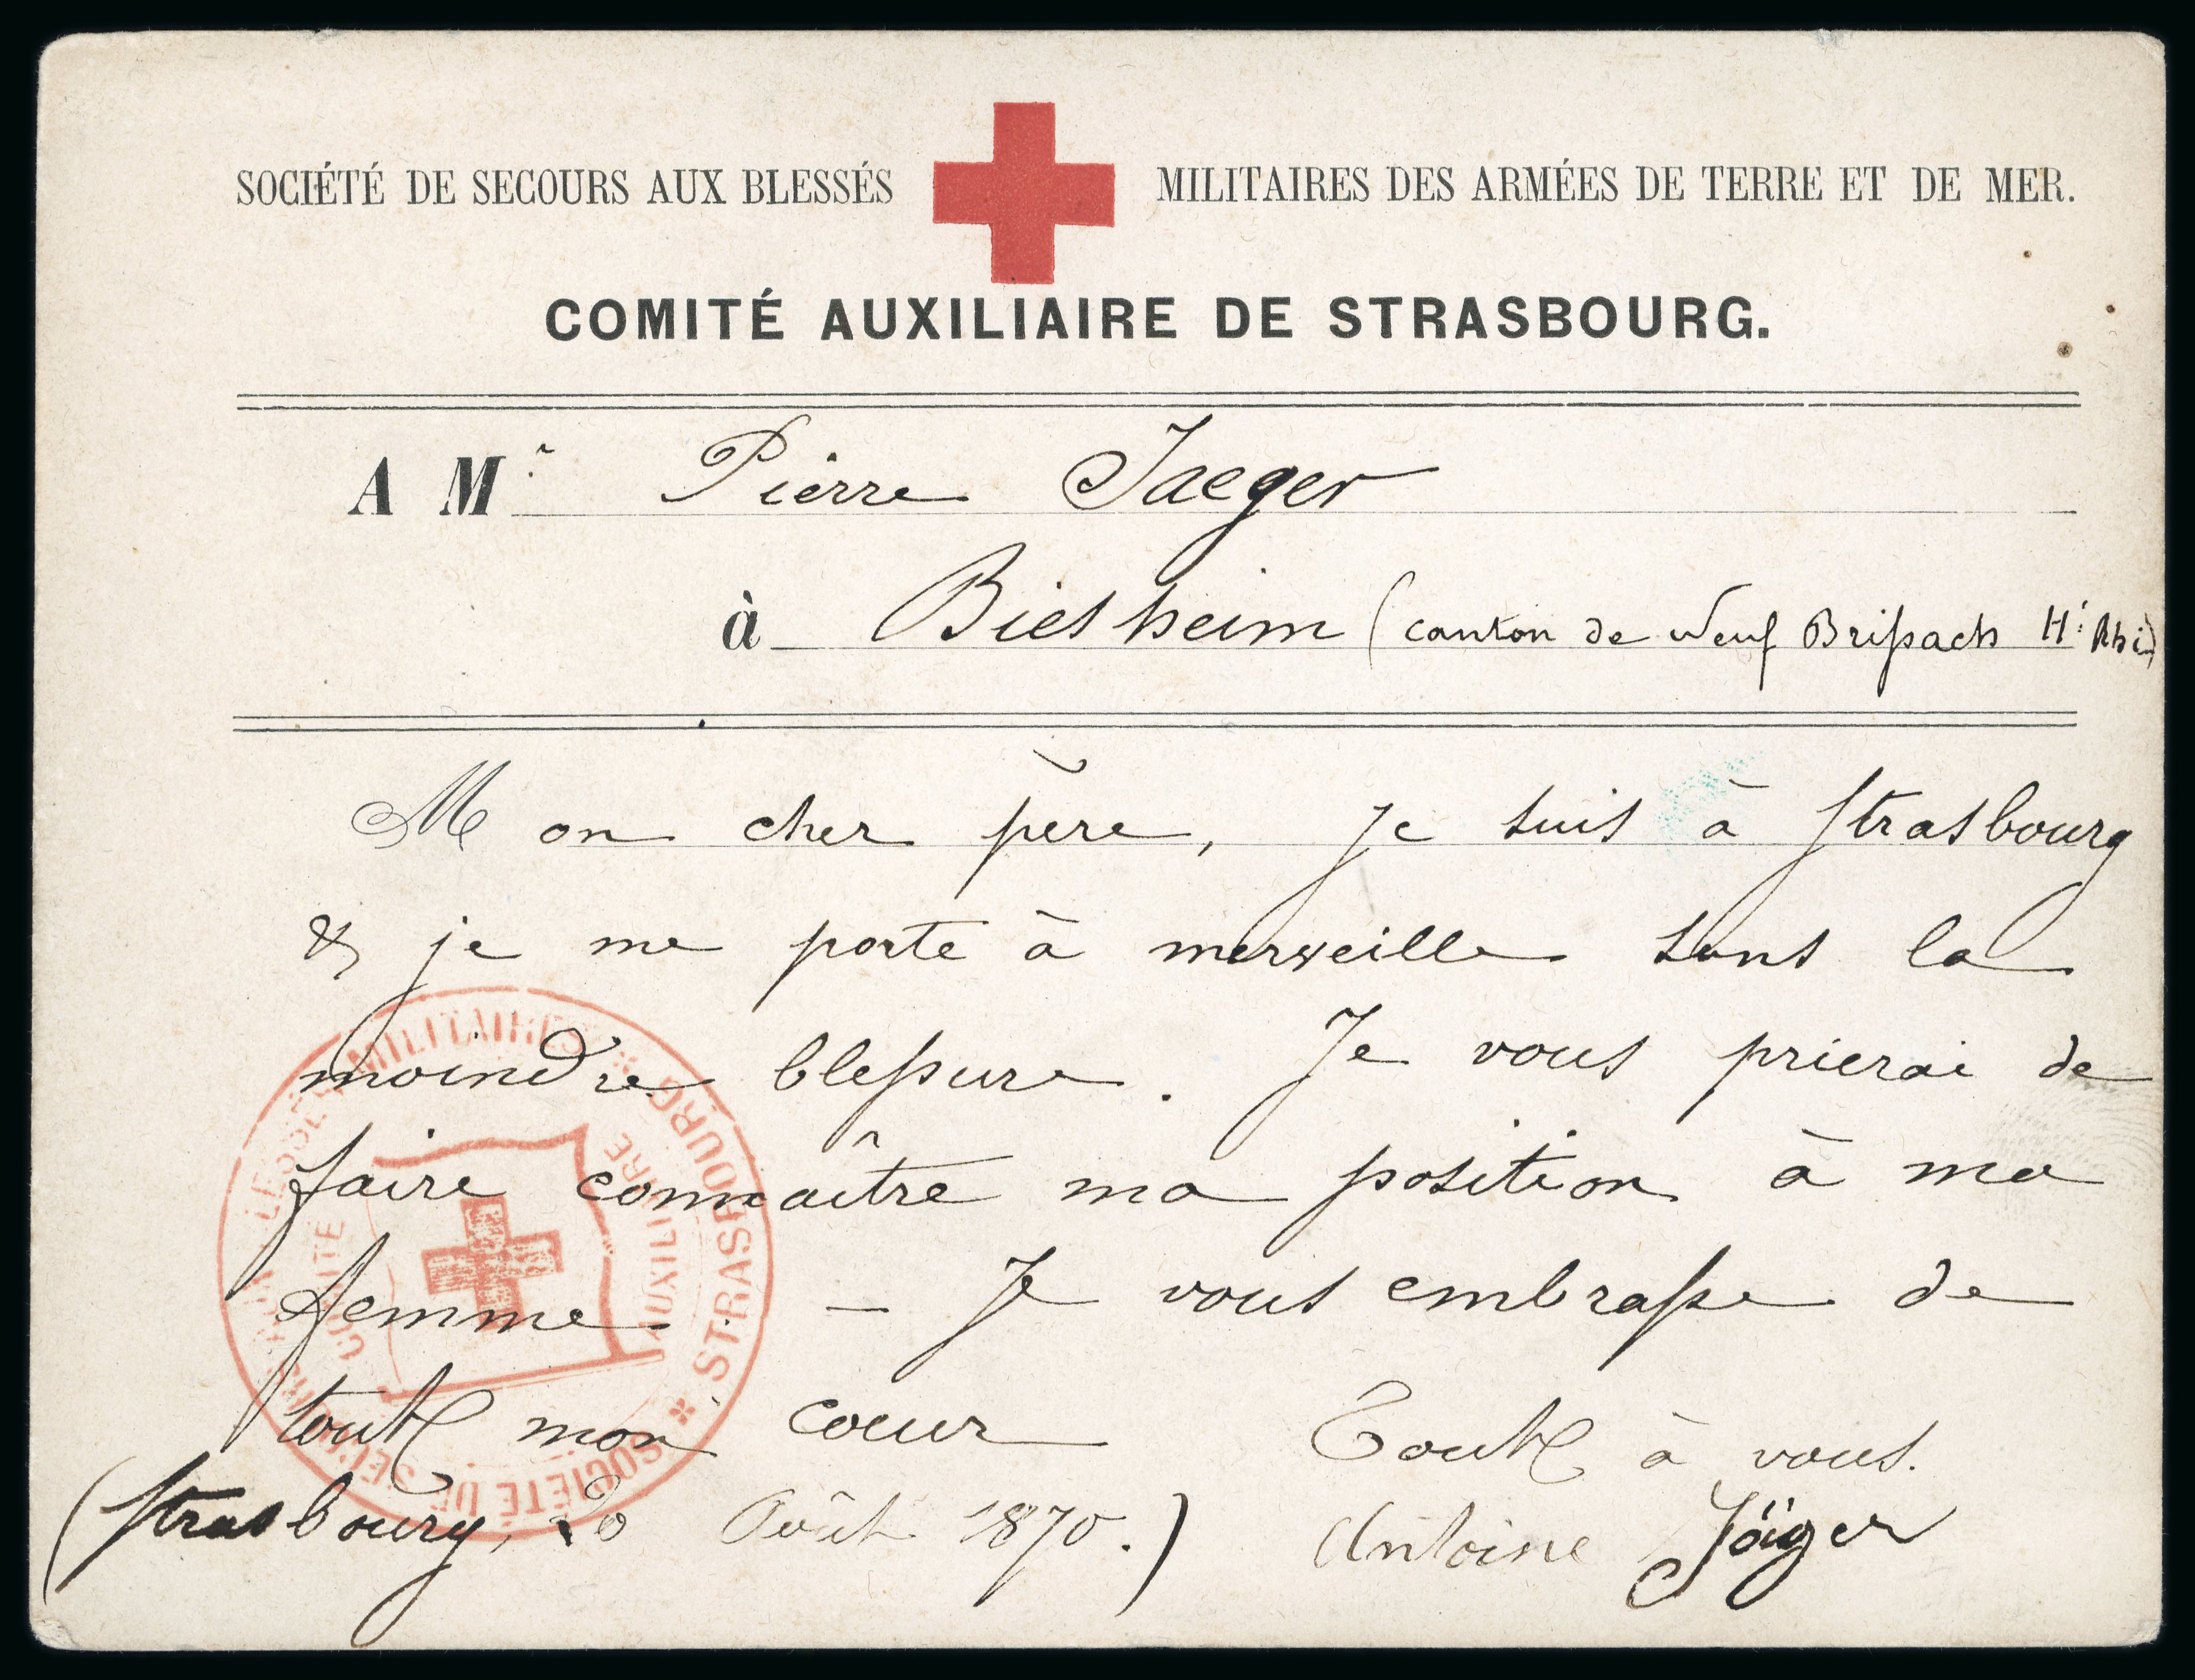 SOCIÉTÉ DE SECOURS AUX BLESSÉS MILITAIRES DES ARMÉES DE TERRE ET DE MER.
COMITÉ AUXILIAIRE DE STRASBOURG.
A Mr Pierre Jaeger
à Biesheim (canton de Neuf Brisach Ht Rhin)
Mon cher père, je suis à Strasbourg
& je me porte à merveille sans la
moindre blessure. Je vous prierai de
faire connaître ma position à ma
femme. – Je vous embrasse de
tout mon coeur Tout à vous.
(Strasbourg, 20 Août 1870.) Antoine Jäger
SOCIÉTÉ DE SECOURS AUX BLESSÉS MILITAIRES * STRASBOURG *
COMITÉ AUXILIAIRE